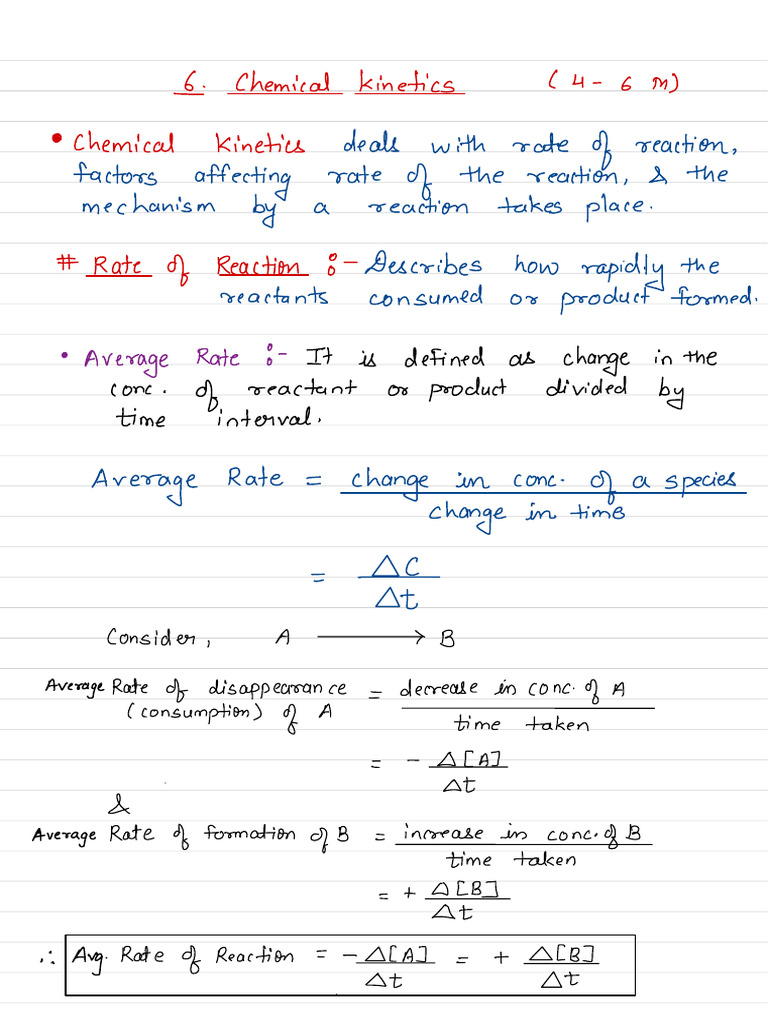 6. Chemical kinetics (4-6 M)
• Chemical kinetics deals with rate of reaction,
factors affecting rate of the reaction, & the
mechanism by a reaction takes place.
# Rate of Reaction :- Describes how rapidly the
reactants consumed or product formed.
• Average Rate :- It is defined as change in the
conc. of reactant or product divided by
time interval.
Average Rate = change in conc. of a species
change in time
= ΔC
Δt
Consider, A ⟶ B
Average Rate of disappearance = decrease in conc. of A
(consumption) of A time taken
= - Δ[A]
Δt
&
Average Rate of formation of B = increase in conc. of B
time taken
= + Δ[B]
Δt
∴ Avg. Rate of Reaction = - Δ[A] = + Δ[B]
Δt Δt